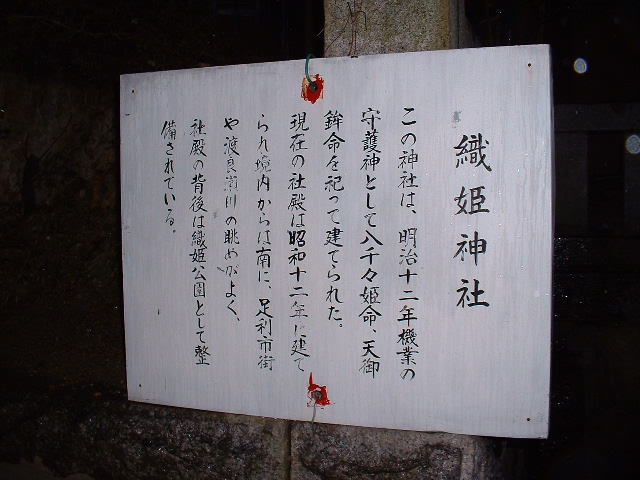 織姫神社
この神社は、明治十二年機業の
守護神として八千々姫命、天御
鉾命を祀って建てられた。
現在の社殿は昭和十二年に建て
られ境内からは南に、足利市街
や渡良瀬川の眺めがよく、
社殿の背後は織姫公園として整
備されている。